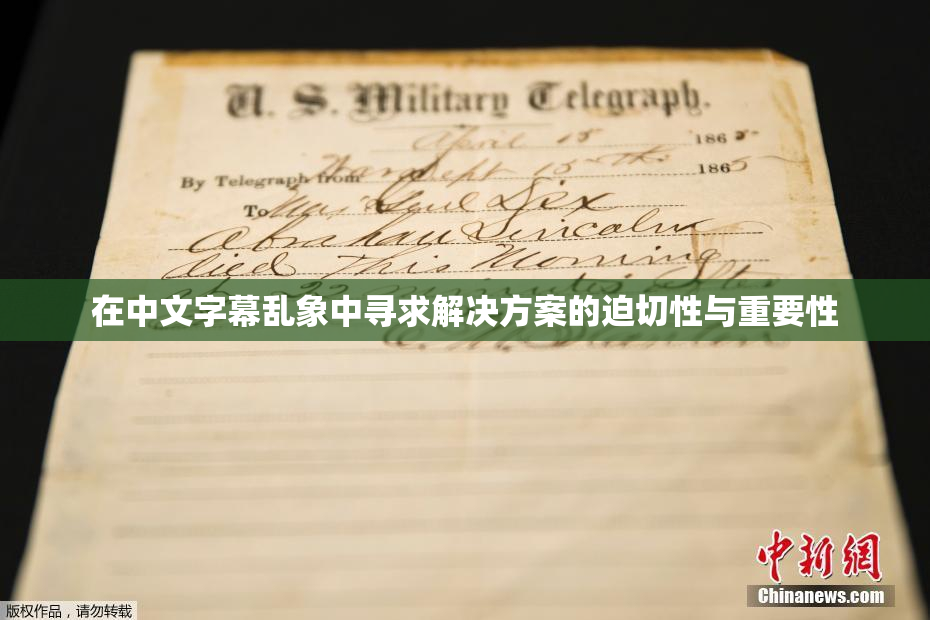 U. S. Military Telegraph.
April 15 1865
By Telegraph from War Dept 15th 1865
To Maj Genl Dix
Abraham Lincoln
died This Morning
22 minutes after
在中文字幕乱象中寻求解决方案的迫切性与重要性
E. M. Stanton
中新網
Chinanews.com
版权作品，请勿转载